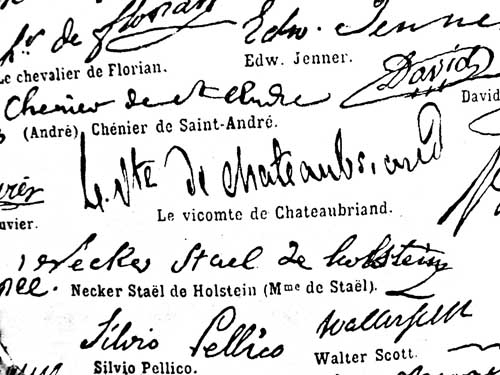 de Florian
Edw. Jenner
Le chevalier de Florian.
Edw. Jenner.
David
Chénier de St André
David
(André) Chénier de Saint-André.
Le Vte de Chateaubriand
uvier.
Le vicomte de Chateaubriand.
Necker Stael de holstein
Necker Staël de Holstein (Mme de Staël).
Silvio Pellico
Walter Scott
Silvio Pellico.
Walter Scott.